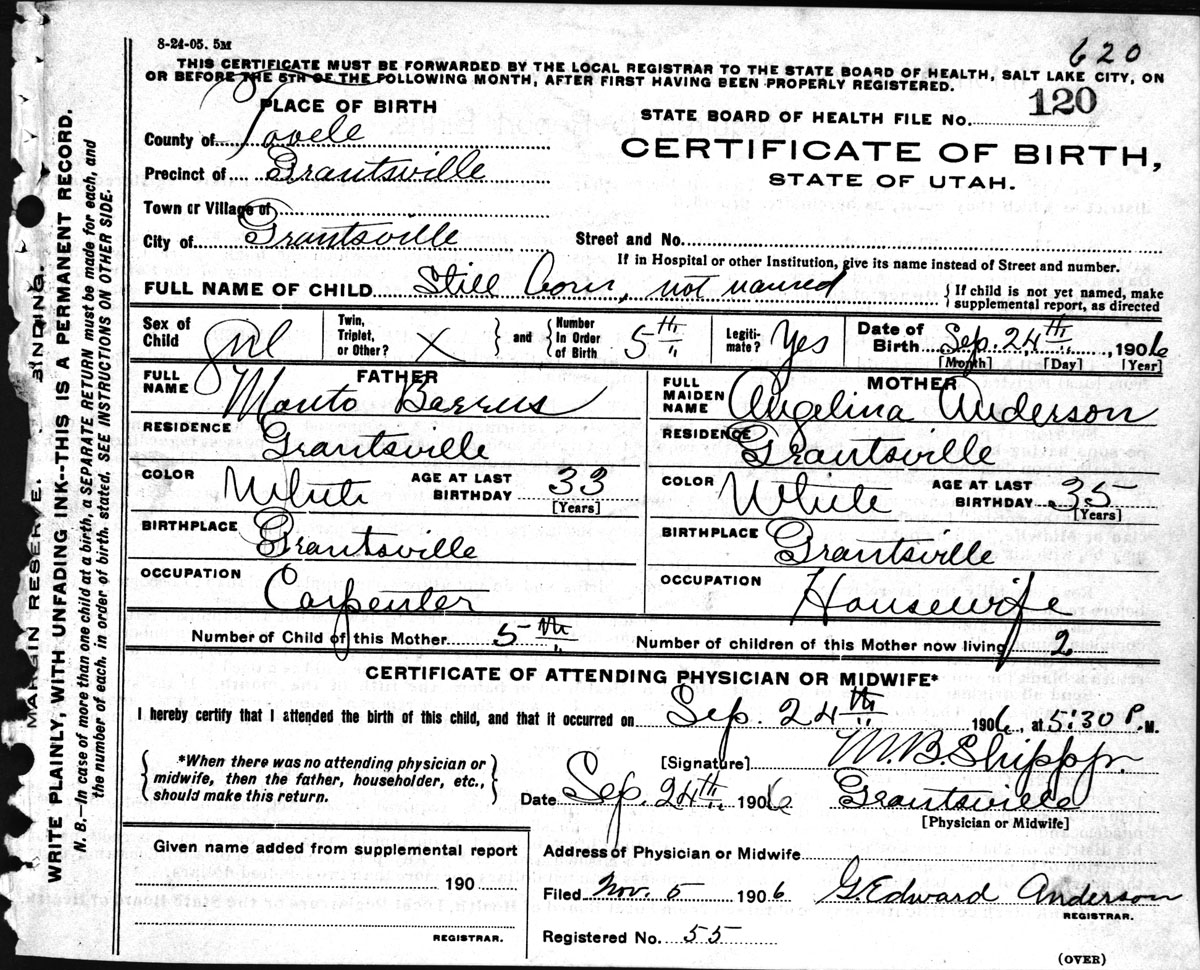 8-24-05. 5M
620
THIS CERTIFICATE MUST BE FORWARDED BY THE LOCAL REGISTRAR TO THE STATE BOARD OF HEALTH, SALT LAKE CITY, ON
OR BEFORE THE 5TH OF THE FOLLOWING MONTH, AFTER FIRST HAVING BEEN PROPERLY REGISTERED.
PLACE OF BIRTH
STATE BOARD OF HEALTH FILE No. 120
County of Tooele
CERTIFICATE OF BIRTH,
Precinct of Grantsville
STATE OF UTAH.
Town or Village of
City of Grantsville
Street and No.
If in Hospital or other Institution, give its name instead of Street and number.
FULL NAME OF CHILD Still born, not named
{ If child is not yet named, make supplemental report, as directed
Sex of Child Girl
Twin, Triplet, or Other? X } and { Number in Order of Birth 5th
Legitimate? Yes
Date of Birth Sep. 24th, 1906
[Month] [Day] [Year]
FATHER
FULL NAME Monto Barrus
RESIDENCE Grantsville
COLOR White AGE AT LAST BIRTHDAY 33
[Years]
BIRTHPLACE Grantsville
OCCUPATION Carpenter
MOTHER
FULL MAIDEN NAME Angelina Anderson
RESIDENCE Grantsville
COLOR White AGE AT LAST BIRTHDAY 35
[Years]
BIRTHPLACE Grantsville
OCCUPATION Housewife
Number of Child of this Mother 5th
Number of children of this Mother now living 2
CERTIFICATE OF ATTENDING PHYSICIAN OR MIDWIFE*
I hereby certify that I attended the birth of this child, and that it occurred on Sep. 24th 1906, at 5:30 P. M.
{ *When there was no attending physician or
midwife, then the father, householder, etc.,
should make this return. }
[Signature] M.B. Shipp jr.
Date Sep. 24th 1906 Grantsville
[Physician or Midwife]
Given name added from supplemental report
190
REGISTRAR.
Address of Physician or Midwife
Filed Nov. 5 1906 G. Edward Anderson
REGISTRAR.
Registered No. 55
(OVER)
MARGIN RESERVE. BINDING.
WRITE PLAINLY, WITH UNFADING INK--THIS IS A PERMANENT RECORD.
N. B.—In case of more than one child at a birth, a SEPARATE RETURN must be made for each, and
the number of each, in order of birth, stated. SEE INSTRUCTIONS ON OTHER SIDE.